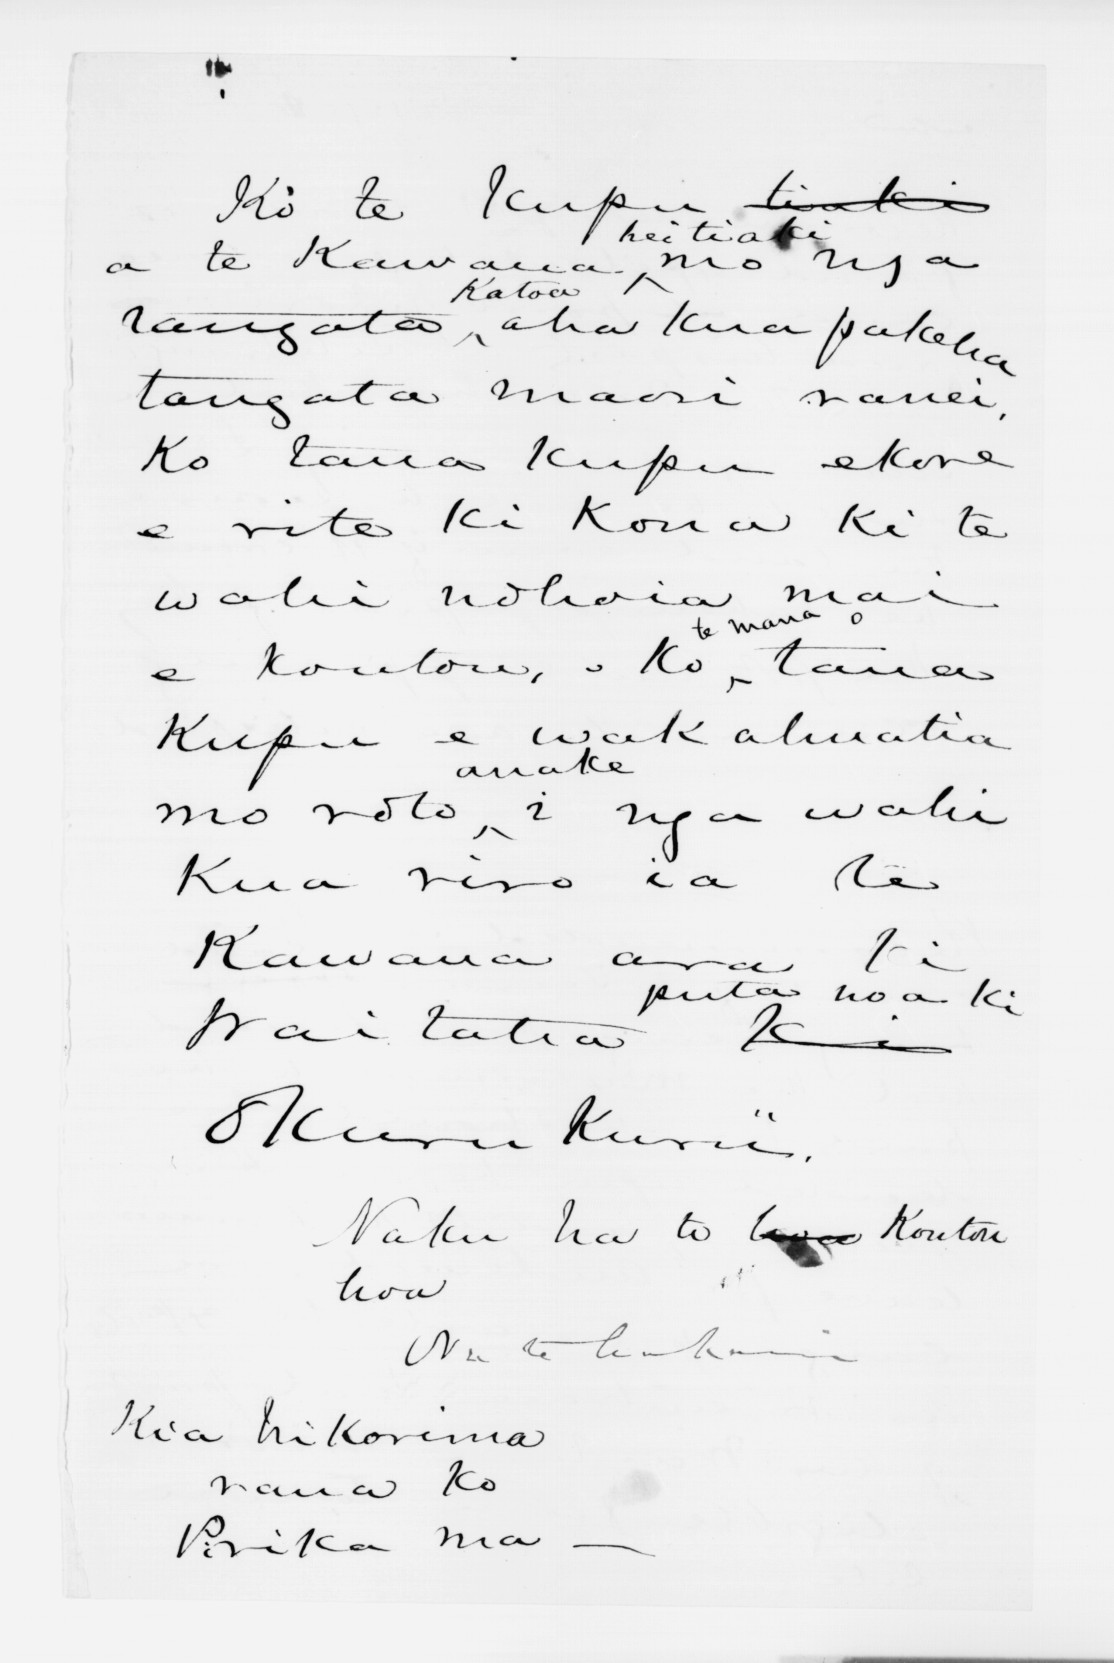 Ko te Kupu tiaki
hei tiaki
a te Kawana mo nga
Katoa
tangata, aha kua pakeha
tangata maori ranei,
Ko tana kupu ekore
e rite ki kona ki te
wahi nohoia mai
te mana o
e koutou, Ko tana
Kupu e wakahuatia
anake
mo roto, i nga wahi
Kua riro ia te
Kawana ara ki
puta noa ki
Waitaha ki
Okurukuru.
Naku na to hoa Koutou
hoa
Na te
Kia hikorima
raua ko
Pirika ma —